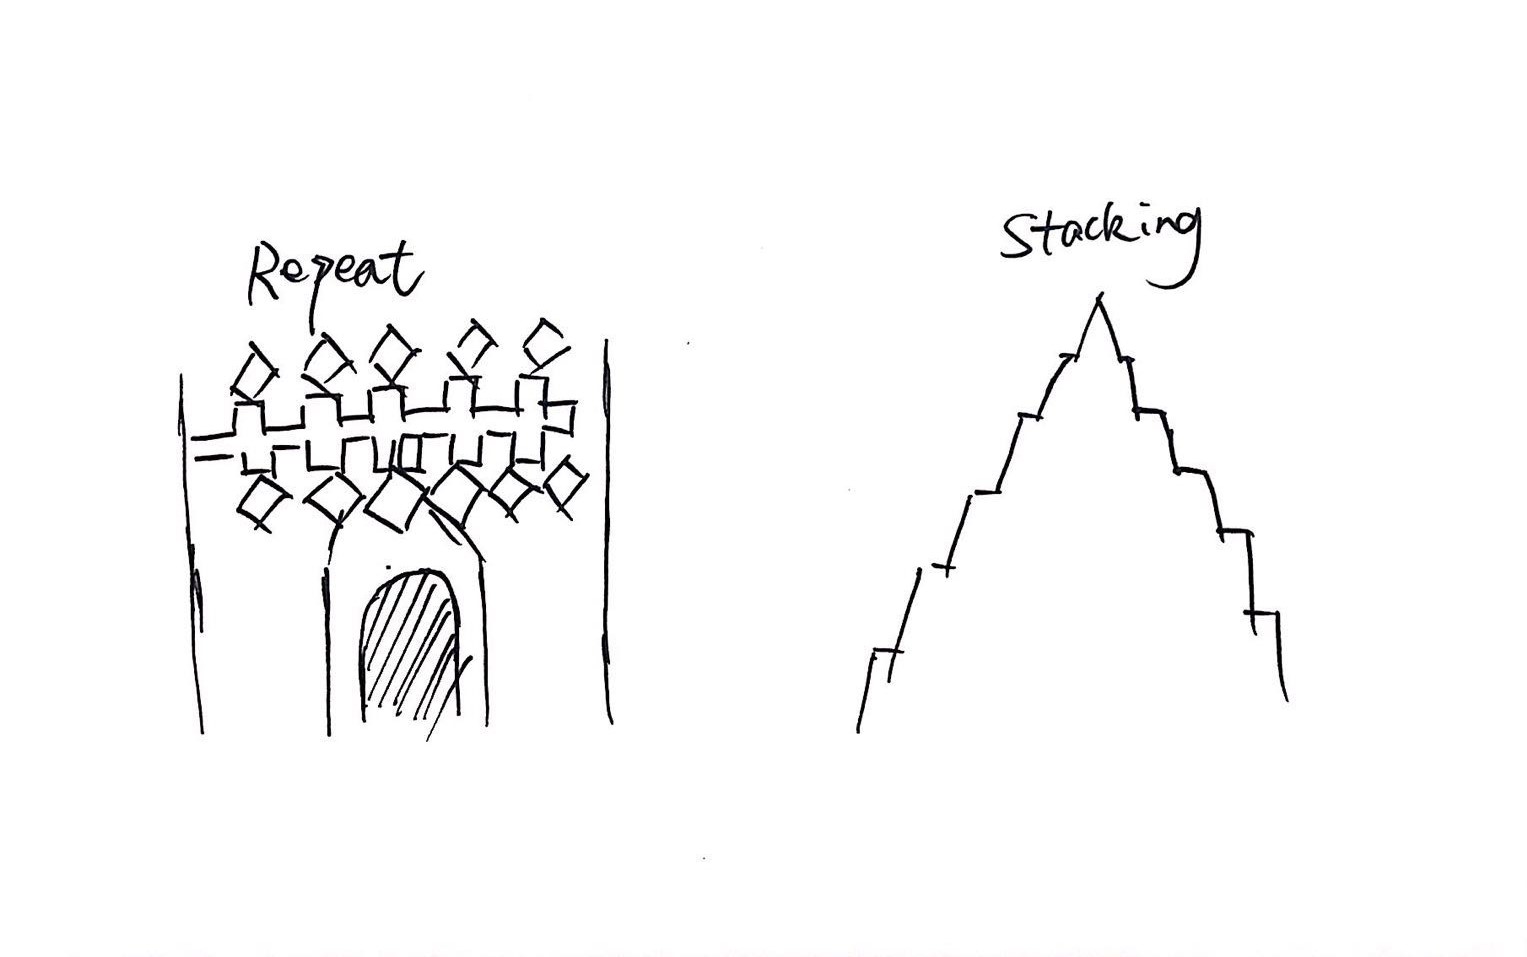 Repeat
Stacking